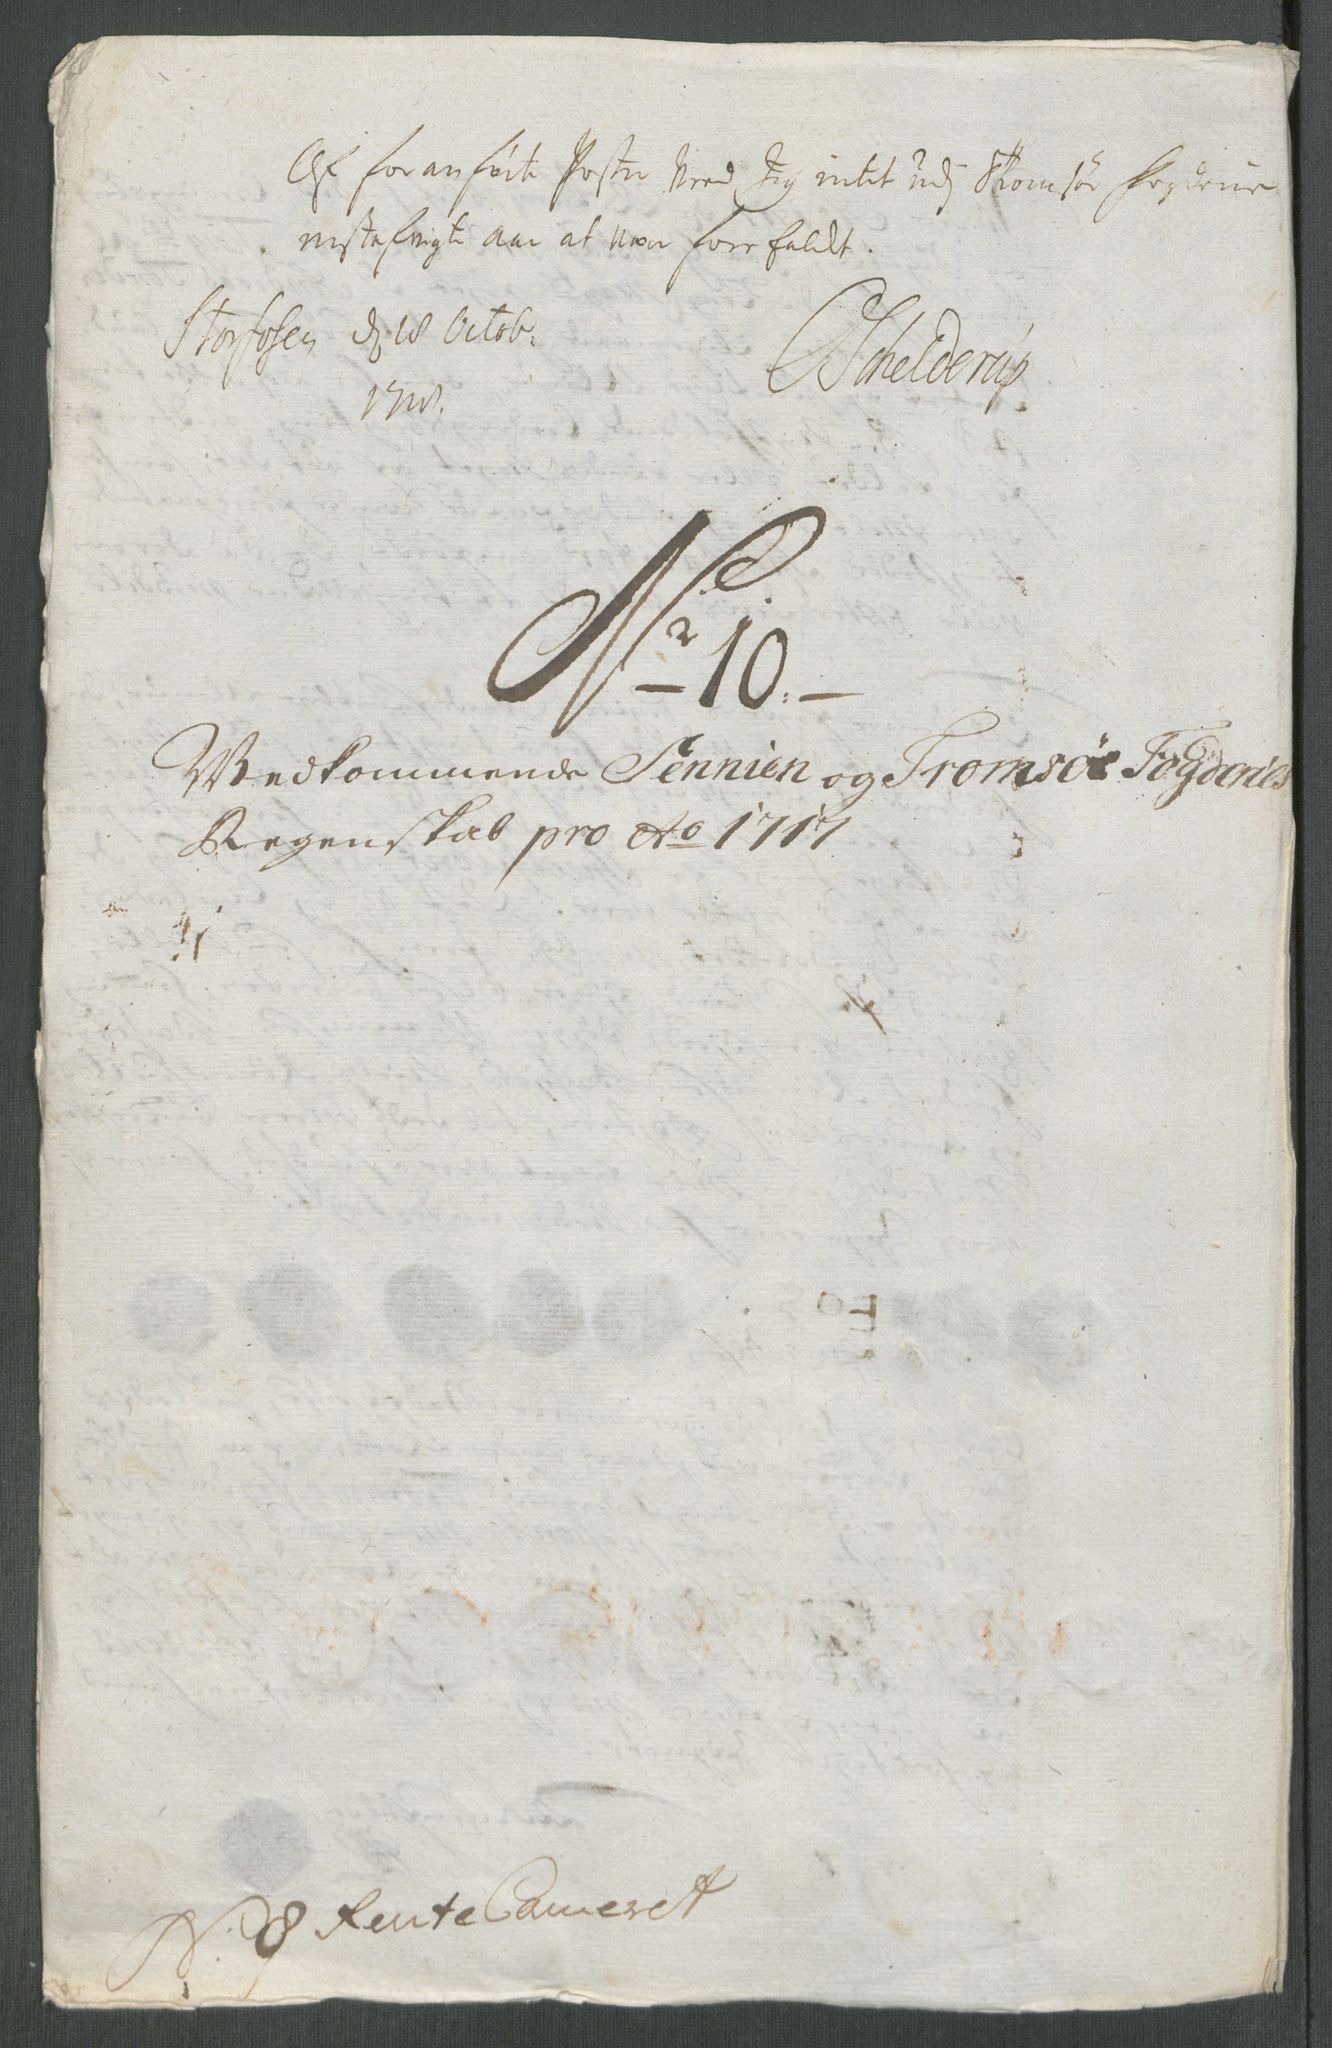 Af foranførte Poster Veed Jeg intet udj Tromsøe fogderie
afvigte aar at være forefaldt.
Storfosen d 18 Octob:
1718.
Schelderup
Nr 10.
Vedkommende Sennien og Tromsøe Fogderies
Regenskab pro Ao 1717
N. 8 RenteCameret